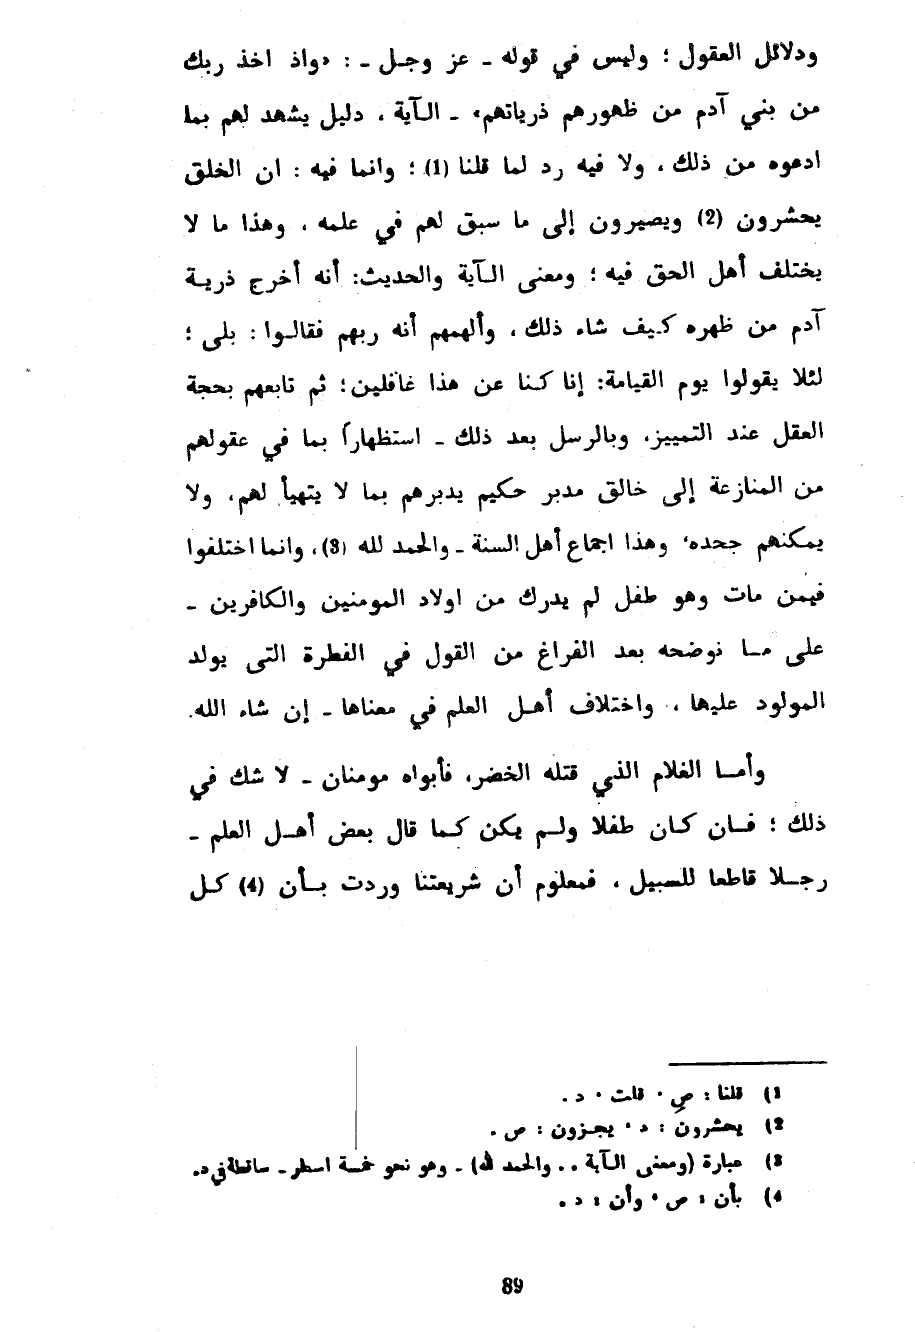 ودلائل العقول ؛ وليس في قوله ـ عز وجـل ـ : «واذ اخذ ربك
من بني آدم من ظهورهم ذرياتهم» ـ الـآية ، دليل يشهد لهم بما
ادعوه من ذلك ، ولا فيه رد لما قلنا (1) ؛ وانما فيه : ان الخلق
يحشرون (2) ويصيرون إلى ما سبق لهم في علمه ، وهذا ما لا
يختلف أهل الحق فيه ؛ ومعنى الـآية والحديث: أنه أخرج ذريـة
آدم من ظهره كـيف شاء ذلك ، وألهمهم أنه ربهم فقالـوا : بلى ؛
لئلا يقولوا يوم القيامة: إنا كـنا عن هذا غافلين؛ ثم تابعهم بحجة
العقل عند التمييز، وبالرسل بعد ذلك ـ استظهاراً بما في عقولهم
من المنازعة إلى خالق مدبر حكيم يدبرهم بما لا يتهيأ لهم، ولا
يمكنهم جحده، وهذا اجماع أهل السنة ـ والحمد لله (3)، وانما اختلفوا
فيمن مات وهو طفل لم يدرك من اولاد المومنين والكافرين ـ
على مـا نوضحه بعد الفراغ من القول في الفطرة التى يولد
المولود عليها ، واختلاف أهـل العلم في معناها ـ إن شاء الله.
وأمـا الغلام الذي قتله الخضر، فأبواه مومنان ـ لا شك في
ذلك ؛ فـان كان طفلا ولـم يكن كـما قال بعض أهـل العلم ـ
رجـلا قاطعا للسبيل ، فمعلوم أن شريعتنا وردت بـأن (4) كـل
1) قلنا : ص ، قلت ، د .
2) يحشرون : د ، يجـزون : ص .
3) عبارة (ومعنى الـآية . . والحمد لله) ـ وهو نحو خمسة اسطر ـ ساقطة في د.
4) بأن : ص ، وأن : د .
89